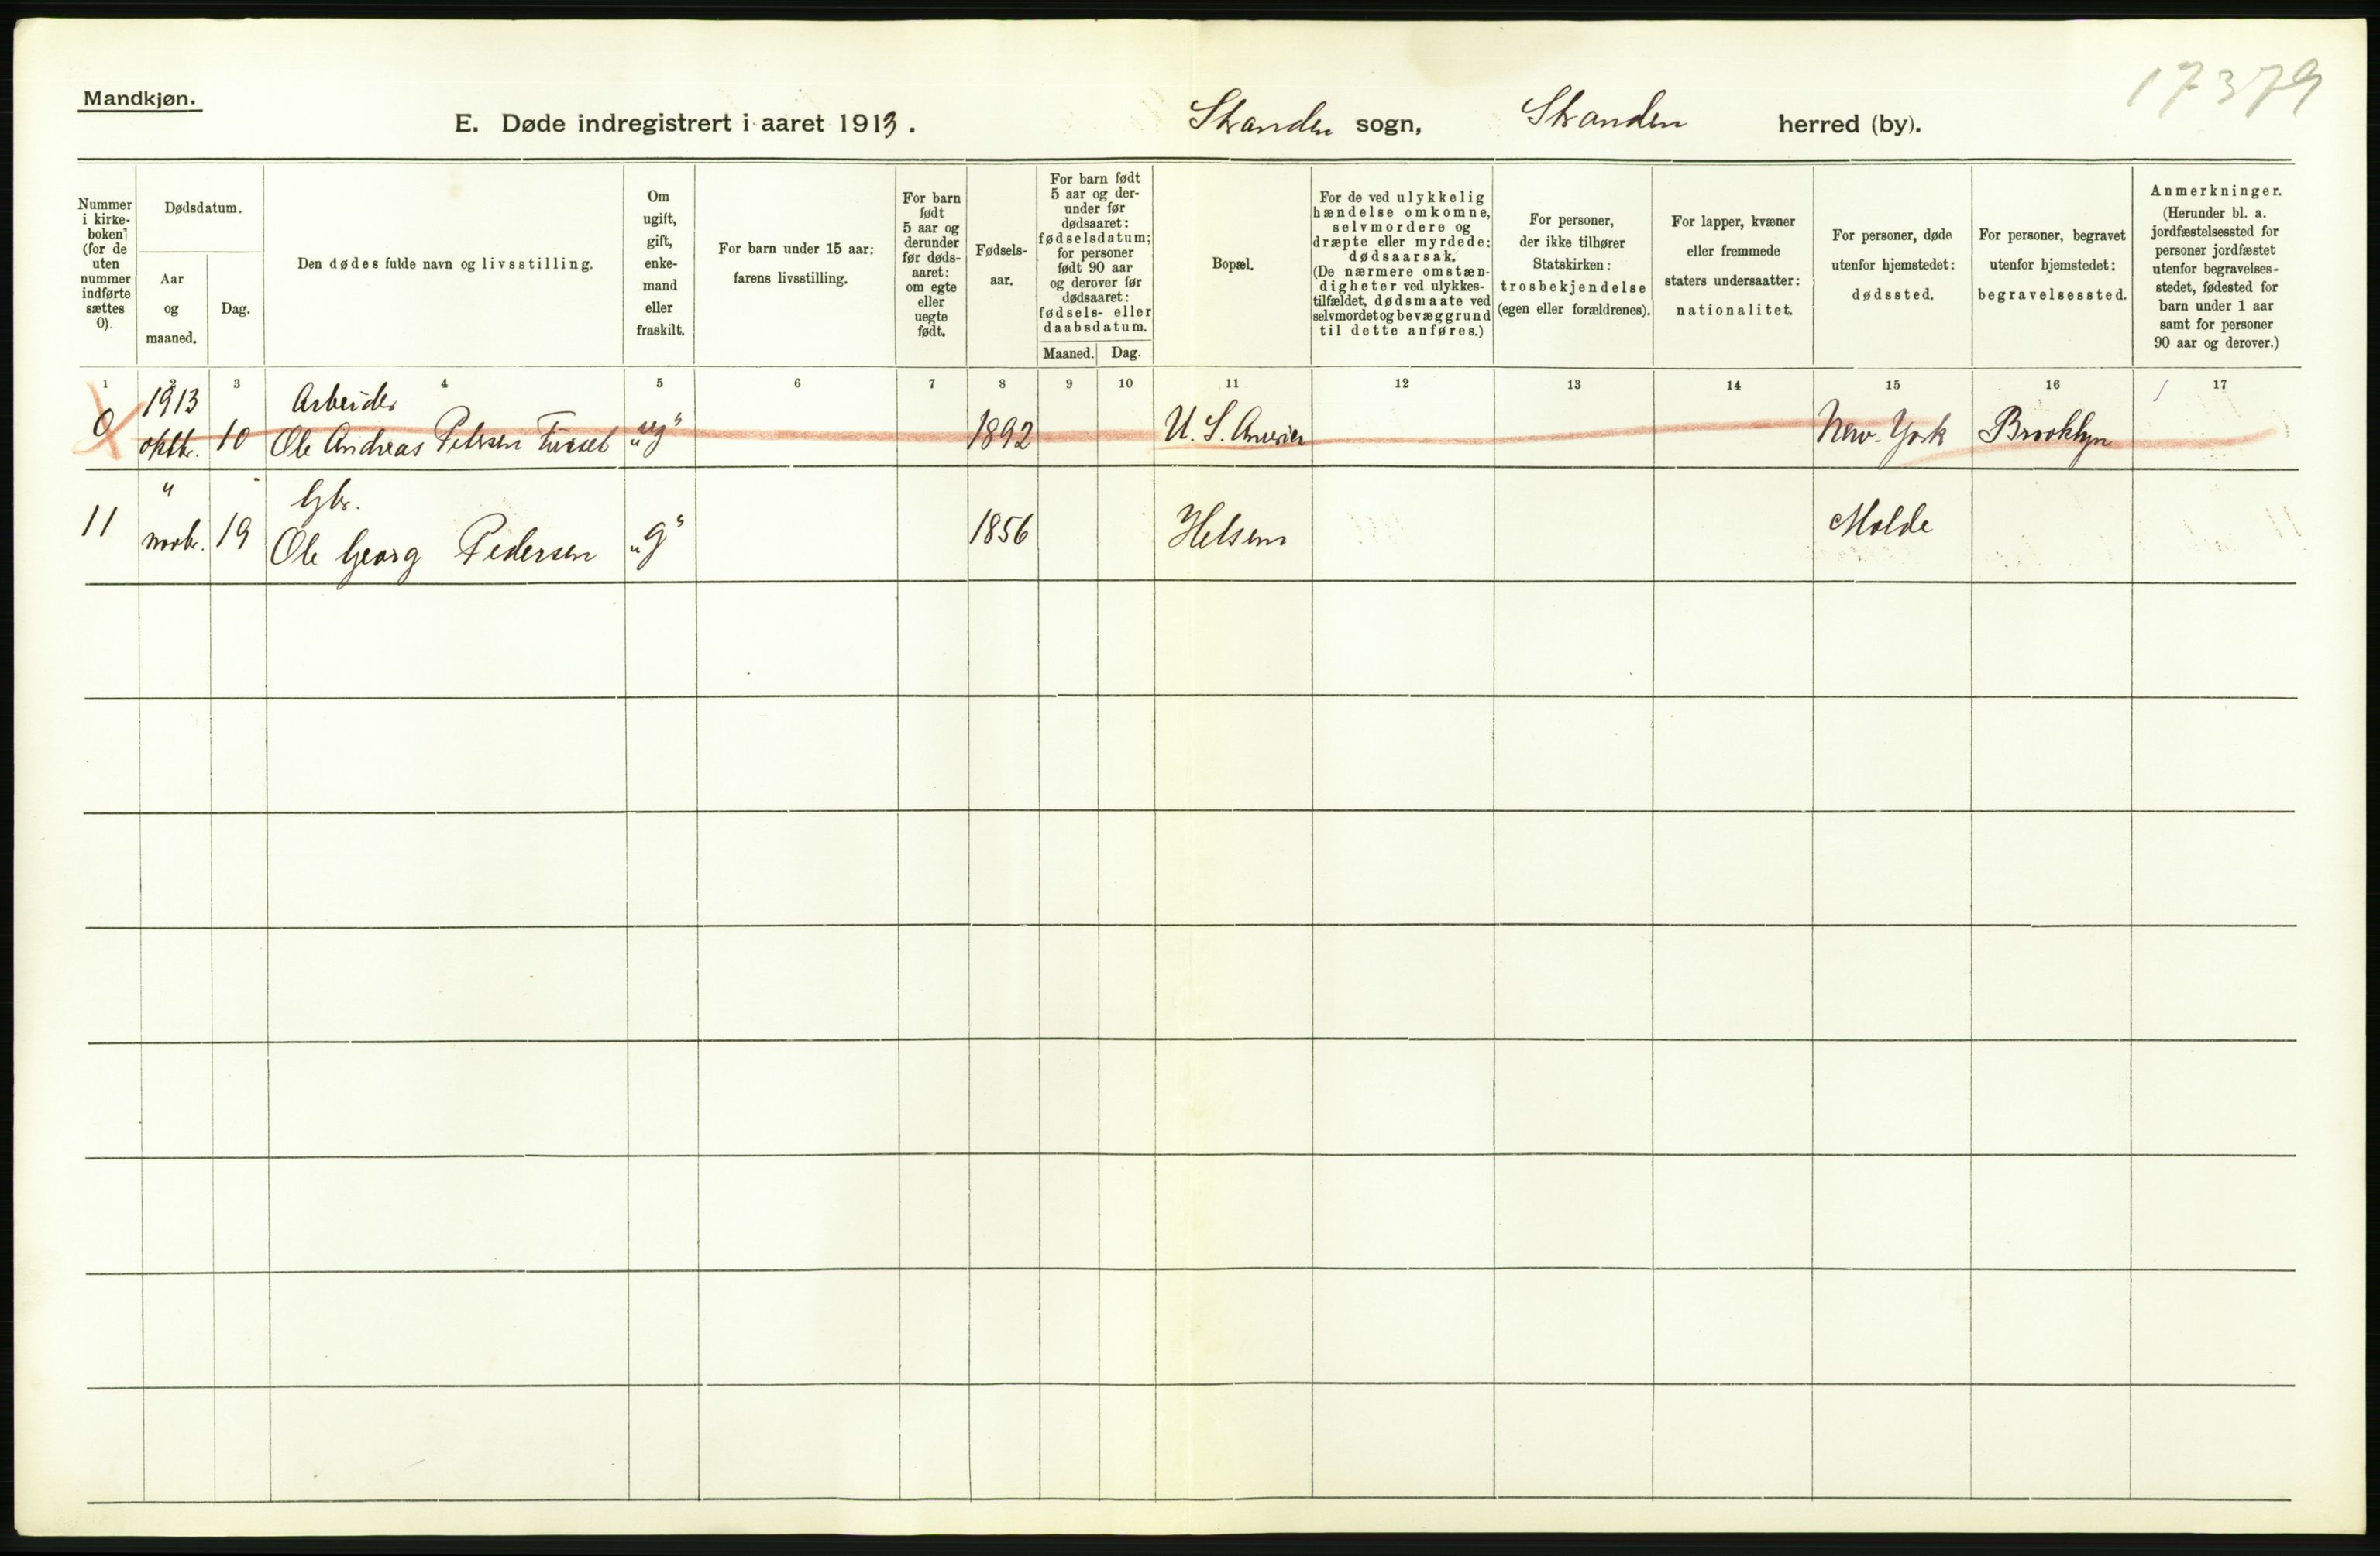 Mandkjøn.
17379
E. Døde indregistrert i aaret 1913. Stranden sogn, Stranden herred (by).
Nummer i kirkeboken (for de uten nummer indførte sættes 0).
Dødsdatum.
Aar og maaned.
Dag.
Den dødes fulde navn og livsstilling.
Om ugift, gift, enkemand eller fraskilt.
For barn under 15 aar: farens livsstilling.
For barn født 5 aar og derunder før dødsaaret: om egte eller uegte født.
Fødselsaar.
For barn født 5 aar og derunder før dødsaaret: fødselsdatum; for personer født 90 aar og derover før dødsaaret: fødsels- eller daabsdatum.
Maaned. Dag.
Bopæl.
For de ved ulykkelig hændelse omkomne, selvmordere og dræpte eller myrdede: dødsaarsak. (De nærmere omstændigheter ved ulykkestilfældet, dødsmaate ved selvmordet og bevæggrund til dette anføres.)
For personer, der ikke tilhører Statskirken: trosbekjendelse (egen eller forældrenes).
For lapper, kvæner eller fremmede staters undersaatter: nationalitet.
For personer, døde utenfor hjemstedet: dødssted.
For personer, begravet utenfor hjemstedet: begravelsessted.
Anmerkninger. (Herunder bl. a. jordfæstelsessted for personer jordfæstet utenfor begravelsesstedet, fødested for barn under 1 aar samt for personer 90 aar og derover.)
1 2 3 4 5 6 7 8 9 10 11 12 13 14 15 16 17
1913 Arbeider
0 oktbr. 10 Ole Andreas Petersen "ug" 1892 U. S. America New-York Brooklyn
" Gbr.
11 novbr. 19 Ole Georg Pedersen "g" 1856 Helsem Molde